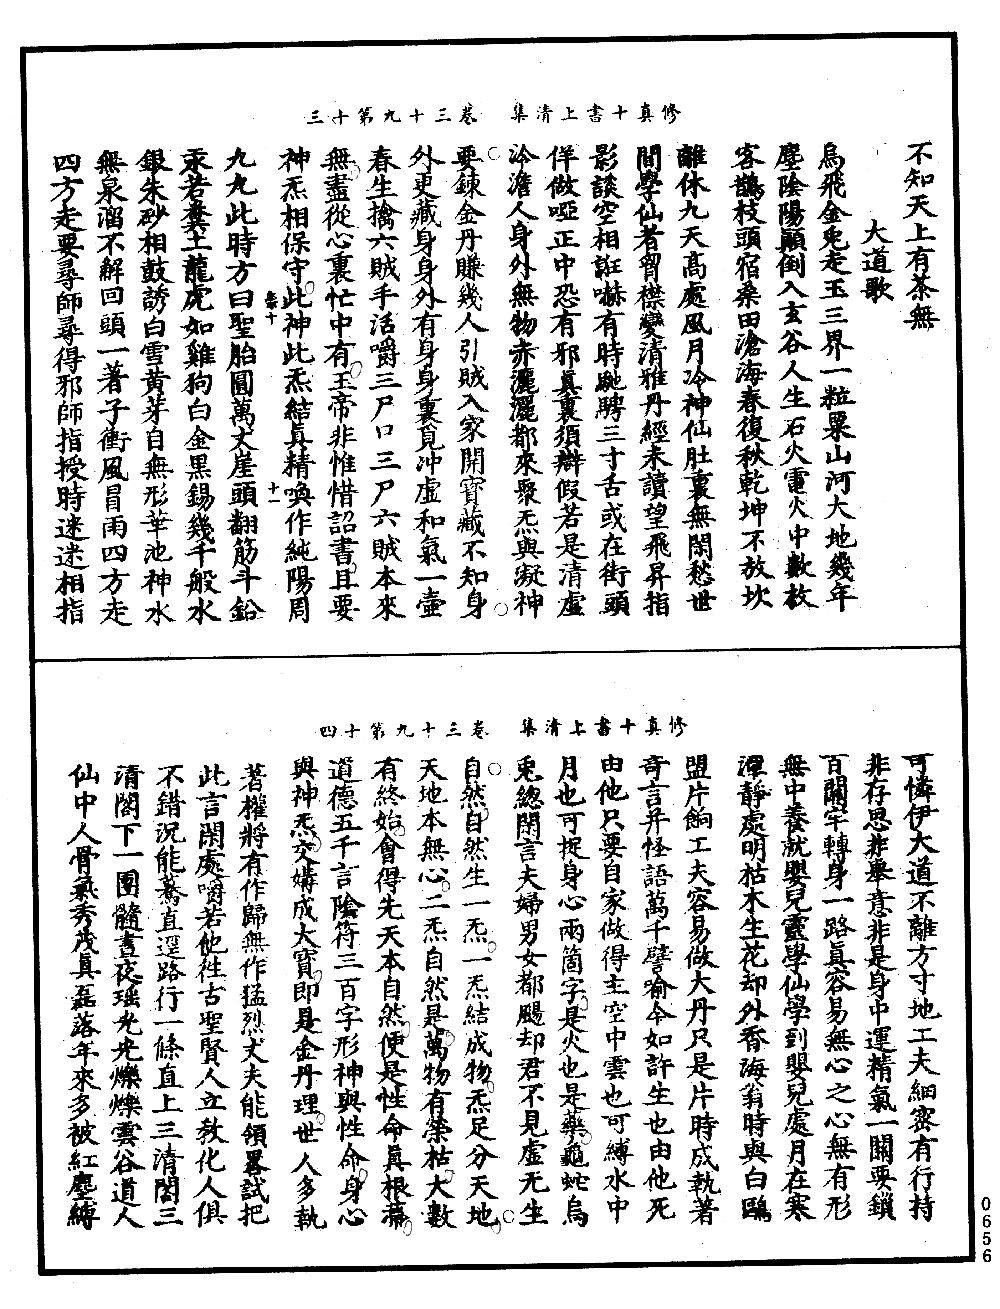 修真十書上清集　卷三十九第十三
不知天上有茶無
大道歌
烏飛金兎走玉三界一粒粟山河大地幾年
塵陰陽顚倒入玄谷人生石火電火中數枚
客鵲枝頭宿桑田滄海春復秋乾坤不放坎
離休九天高處風月冷神仙肚裏無閑愁世
間學仙者胷襟變清雅丹經未讀望飛昇指
影談空相誑嚇有時馳騁三寸舌或在街頭
佯做啞正中恐有邪眞裏須辯假若是清虛
泠澹人身外無物赤灑灑都來聚炁與凝神
要鍊金丹賺幾人引賊入家開寶藏不知身
外更藏身身外有身身裏覓冲虛和氣一壷
春生擒六賊手活嚼三尸口三尸六賊本來
無盡從心裏忙中有玉帝非惟惜詔書且要
神炁相保守此神此炁結眞精喚作純陽周
卷十　十一
九九此時方曰聖胎圓萬丈崖頭翻筋斗鉛
汞若糞土龍虎如雞狗白金黑錫幾千般水
銀朱砂相鼓誘白雪黃芽自無形華池神水
無泉溜不解回頭一著子衝風冒雨四方走
四方走要尋師尋得邪師指授時迷迷相指
修真十書上清集　卷三十九第十四
可憐伊大道不離方寸地工夫細密有行持
非存思非舉意非是身中運精氣一關要鎖
百關牢轉身一路眞容易無心之心無有形
無中養就嬰兒靈學仙學到嬰兒處月在寒
潭靜處明枯木生花却外香海翁時與白鷗
盟片餉工夫容易做大丹只是片時成執著
奇言并怪語萬千譬喻今如許生也由他死
由他只要自家做得主空中雲也可縛水中
月也可捉身心兩箇字是火也是藥龜蛇烏
兎總閑言夫婦男女都颺却君不見虛无生
自然自然生一炁一炁結成物炁足分天地
天地本無心二炁自然是萬物有榮枯大數
有終始會得先天本自然便是性命眞根蔕
道德五千言陰符三百字形神與性命身心
與神炁交媾成大寶即是金丹理世人多執
著權將有作歸無作猛烈丈夫能領畧試把
此言閑處嚼若他徃古聖賢人立敎化人俱
不錯況能驀直逕路行一條直上三清閣三
清閣下一團髓晝夜瑶光光爍爍雲谷道人
仙中人骨氣秀茂眞磊落年來多被紅塵縛
0656